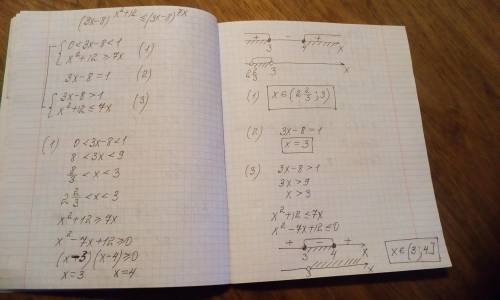 (3x-8)^(x²+12) ≤ (3x-8)^(7x)
{ 0<3x-8<1
x²+12 ≥ 7x (1)
3x-8=1 (2)
{ 3x-8>1
x²+12 ≤ 7x (3)
(1) 0<3x-8<1
8<3x<9
8/3 < x < 3
2 2/3 < x < 3
x²+12 ≥ 7x
x²-7x+12 ≥ 0
(x-3)(x-4) ≥ 0
x=3 x=4
+ - +
3 4 x
2 2/3 3 x
(1) x∈(2 2/3; 3)
(2) 3x-8=1
x=3
(3) 3x-8>1
3x>9
x>3
x²+12 ≤ 7x
x²-7x+12 ≤ 0
+ - +
3 4 x
3 x
x∈(3; 4]